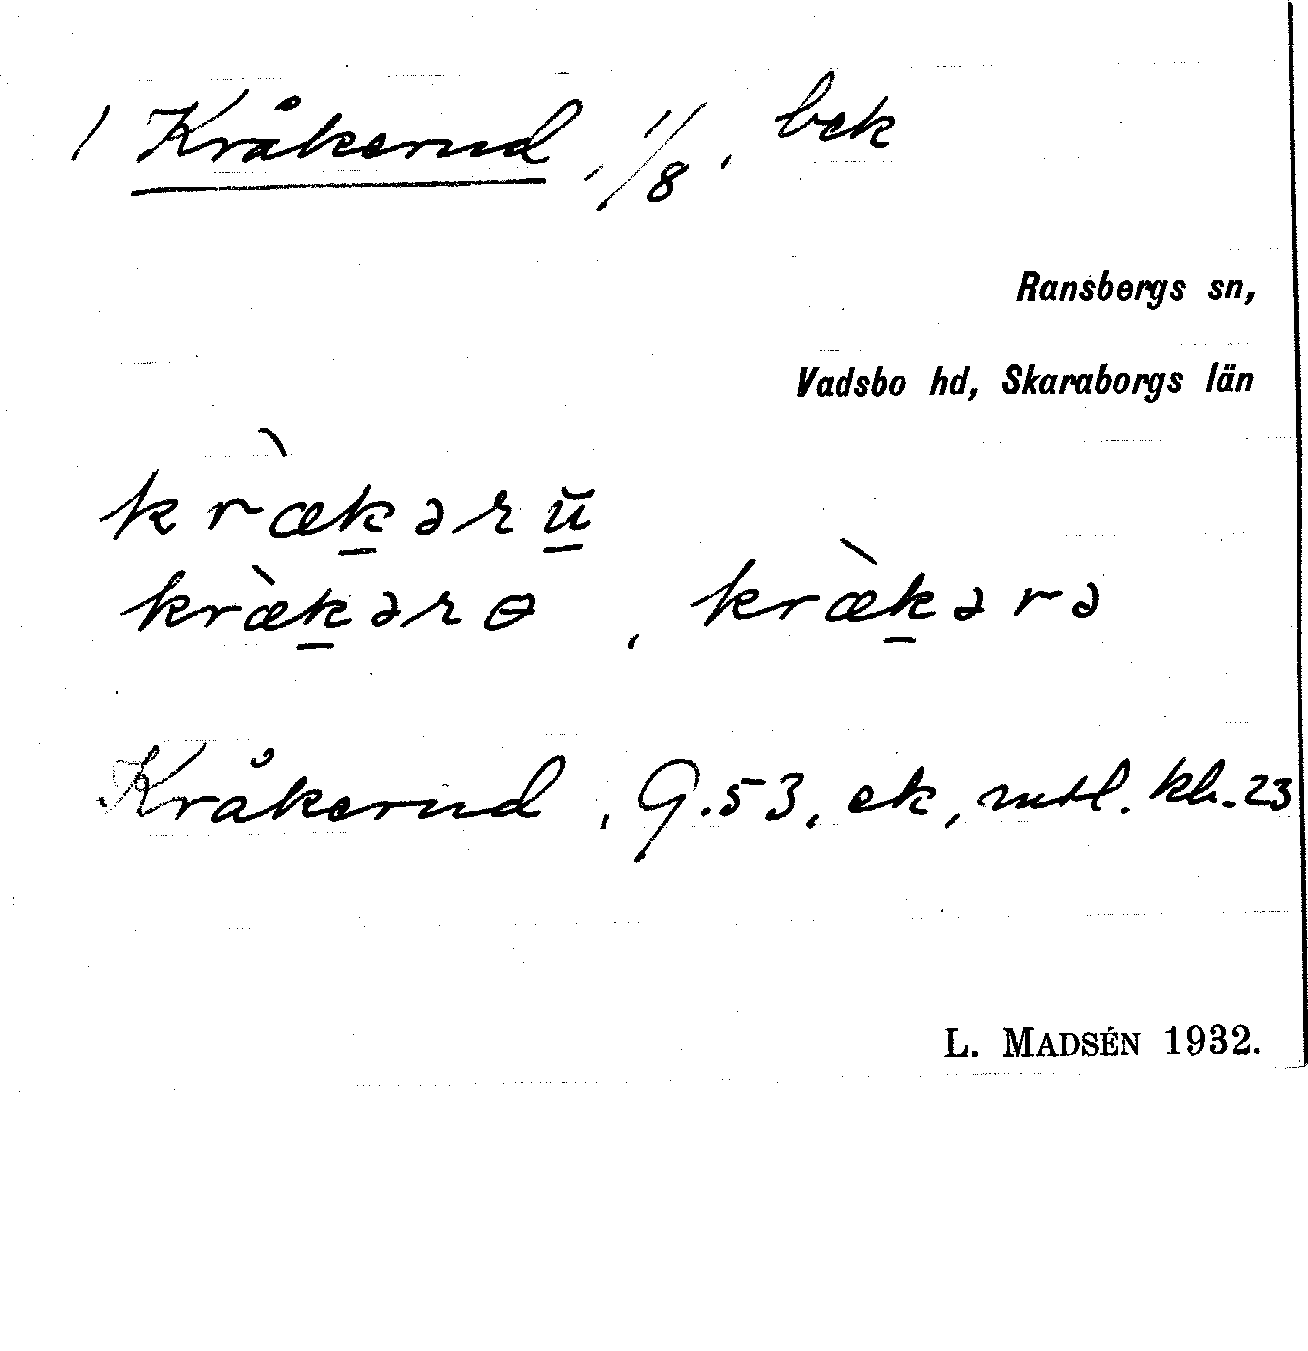 1 Kråkerud, 1/8, bek
Ransbergs sn,
Vadsbo hd, Skaraborgs län
kræ̀k̠ərŭ̠
kræ̀k̠ərɵ, kræ̀k̠ərə
Kråkerud, G.53, ek, mtl. kh.23
L. MADSÉN 1932.